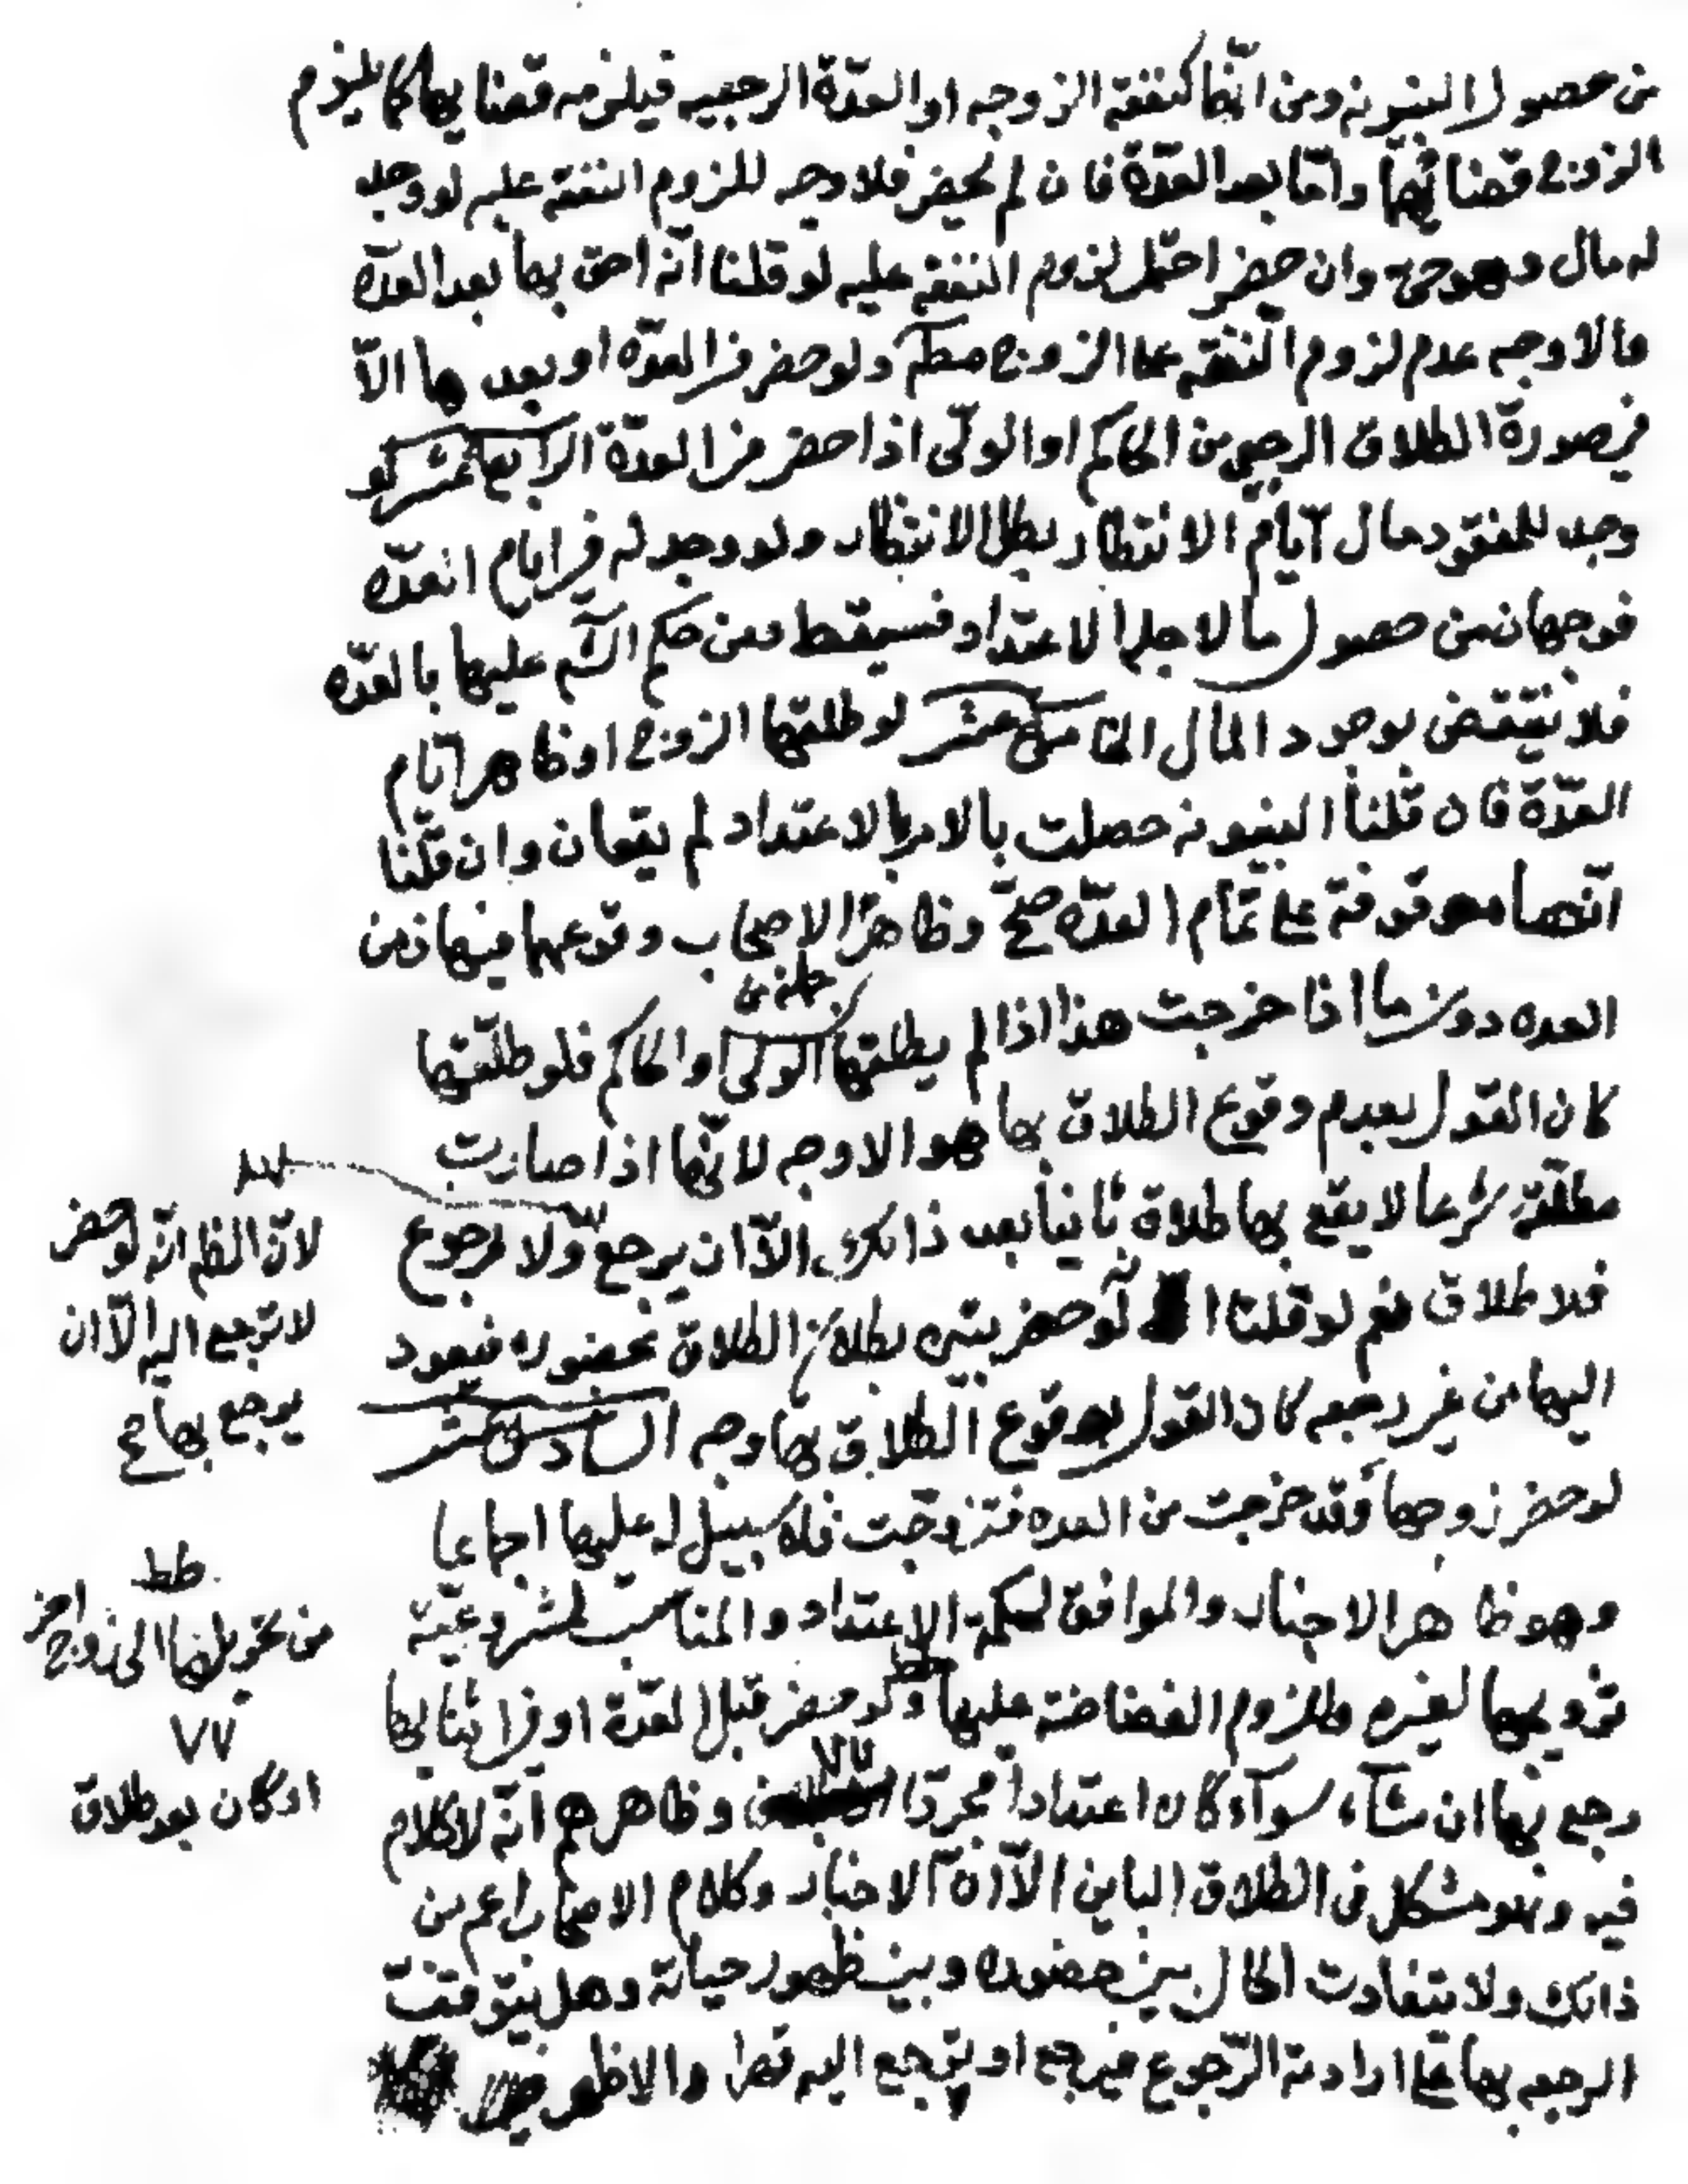 من حصول البينونة ومن انّها كنفقة الزوجه او العدّة الرجعيه فيلزمه قضايها كما يلزم
الزوج قضائها وامّا بعد العدّة فان لم يحضر فلا وجه للزوم النفقة عليه لو وجد
له مال وهو حي وان حضر احتمل لزوم النفقة عليه لو قلنا انه احق بها بعد العدّه
فالاوجه عدم لزوم النفقه على الزوج مطلقا ولو حضر في العدّه او بعدها الاّ
في صورة الطلاق الرجعي من الحاكم او الولّى اذا حضر في العدّة الرابع عشر لو
وجد للمفقود مال ايّام الانتظار بطل الانتظار ولو وجد له في ايام العدّه
فوجهان من حصول ما لاجله الاعتداد فسيقط ومن حكم الشّ عليها بالعدّه
فلا ينتقض بوجود المال الخامس عشر لو طلقها الزوج او ظاهر ايّام
العدّة فان قلنا البينونه حصلت بالامر بالاعتداد لم يقعان وان قلنا
انّهما موقوفة على تمام العدّه صحّ وظاهر الاصحاب وقوعهما فيها زمن
العده دون ما اذا خرجت هذا اذا لم يطلقها الولى او الحاكم فلو طلّقها
كان القول بعدم وقوع الطلاق بها هو الاوجه لانّها اذا صارت
مطلّقة شرعا لا يقع بها طلاق ثانيا بعد ذالك الاّ ان يرجع ولا رجوع
لانّ الظ انّه لو حضر
لا ترجع اليه الاّ ان
يرجع بها ح
فلا طلاق نعم لو قلنا انه لو حضر يتبين بطلان الطلاق بحضوره فيعود
اليها من غير رجعه كان القول بوقوع الطلاق بها وجه السادس عشر
لو حضر زوجها وقد خرجت من العده فتزوجّت فلا سبيل له عليها اجماعا
وهو ظاهر الاخبار والموافق لحكمة الاعتداد والمناسب لمشروعيّة
من تحويلها الى زوج اخر
تزويجها لغيره وللزوم الغضاضة عليها ولو حضر قبل العدّة او في اثنائها
رجع بها ان شآء سوآء كان اعتدادا مجردّا وظاهرهم انّه لا كلام
او كان بعد طلاق
فيه وهو مشكل في الطلاق الباين الاّ انّ الاخبار وكلام الاصحاب اعم من
ذالك ولا يتفاوت الحال بين حضوره وبين ظهور حياته وهل يتوقف
الرجعه بها على ارادته الرّجوع فيرجع او يرجع اليه قهرا والاظهر